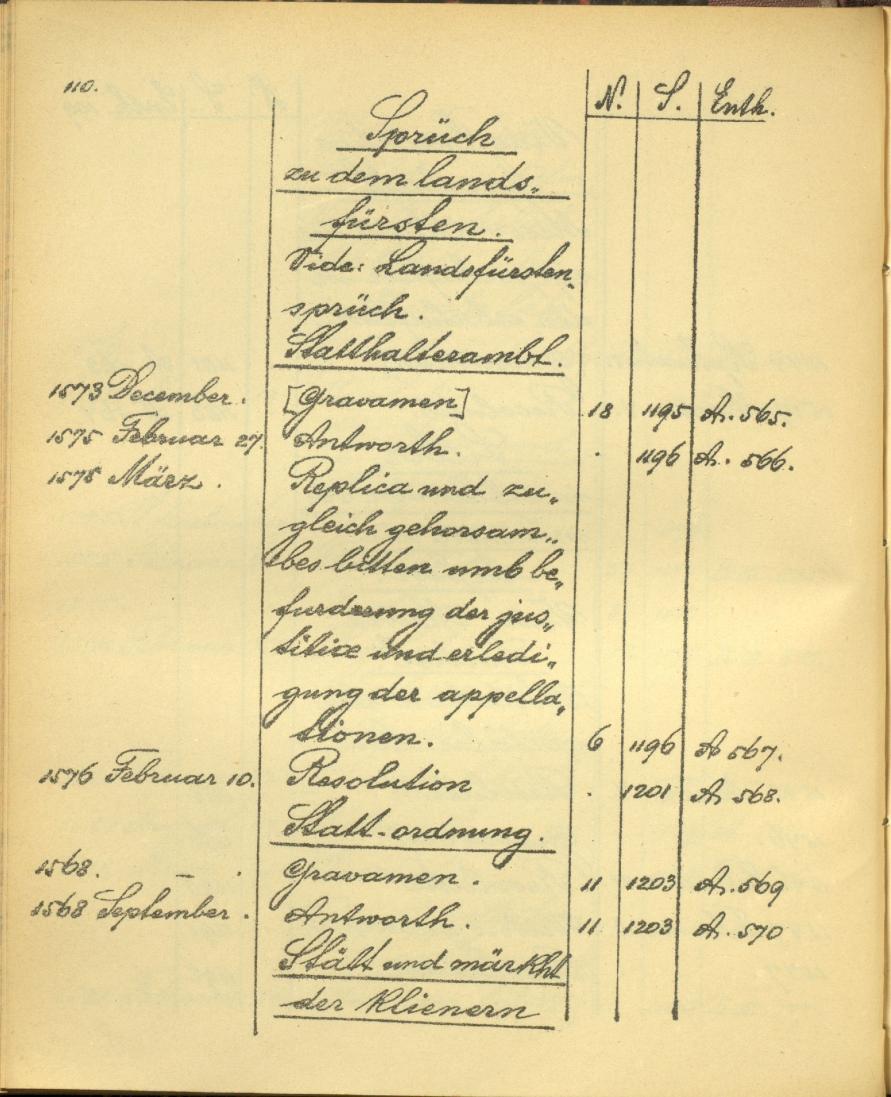 110.
N. S. Enth.
Sprüch
zu dem lands„
fürsten.
Vide: Landsfürsten„
sprüch.
Statthalterambt.
1573 December. [Gravamen] 18 1195 A. 565.
1575 Februar 27. Antworth. . 1196 A. 566.
1575 März. Replica und zu„
gleich gehorsam„
bes bitten umb be„
furderung der jus„
titiæ und erledi„
gung der appella„
tionen. 6 1196 A 567.
1576 Februar 10. Resolution . 1201 A. 568.
Statt-ordnung.
1568. – . Gravamen. 11 1203 A. 569
1568 September. Antworth. 11 1203 A. 570
Stätt und märkht
der klienern